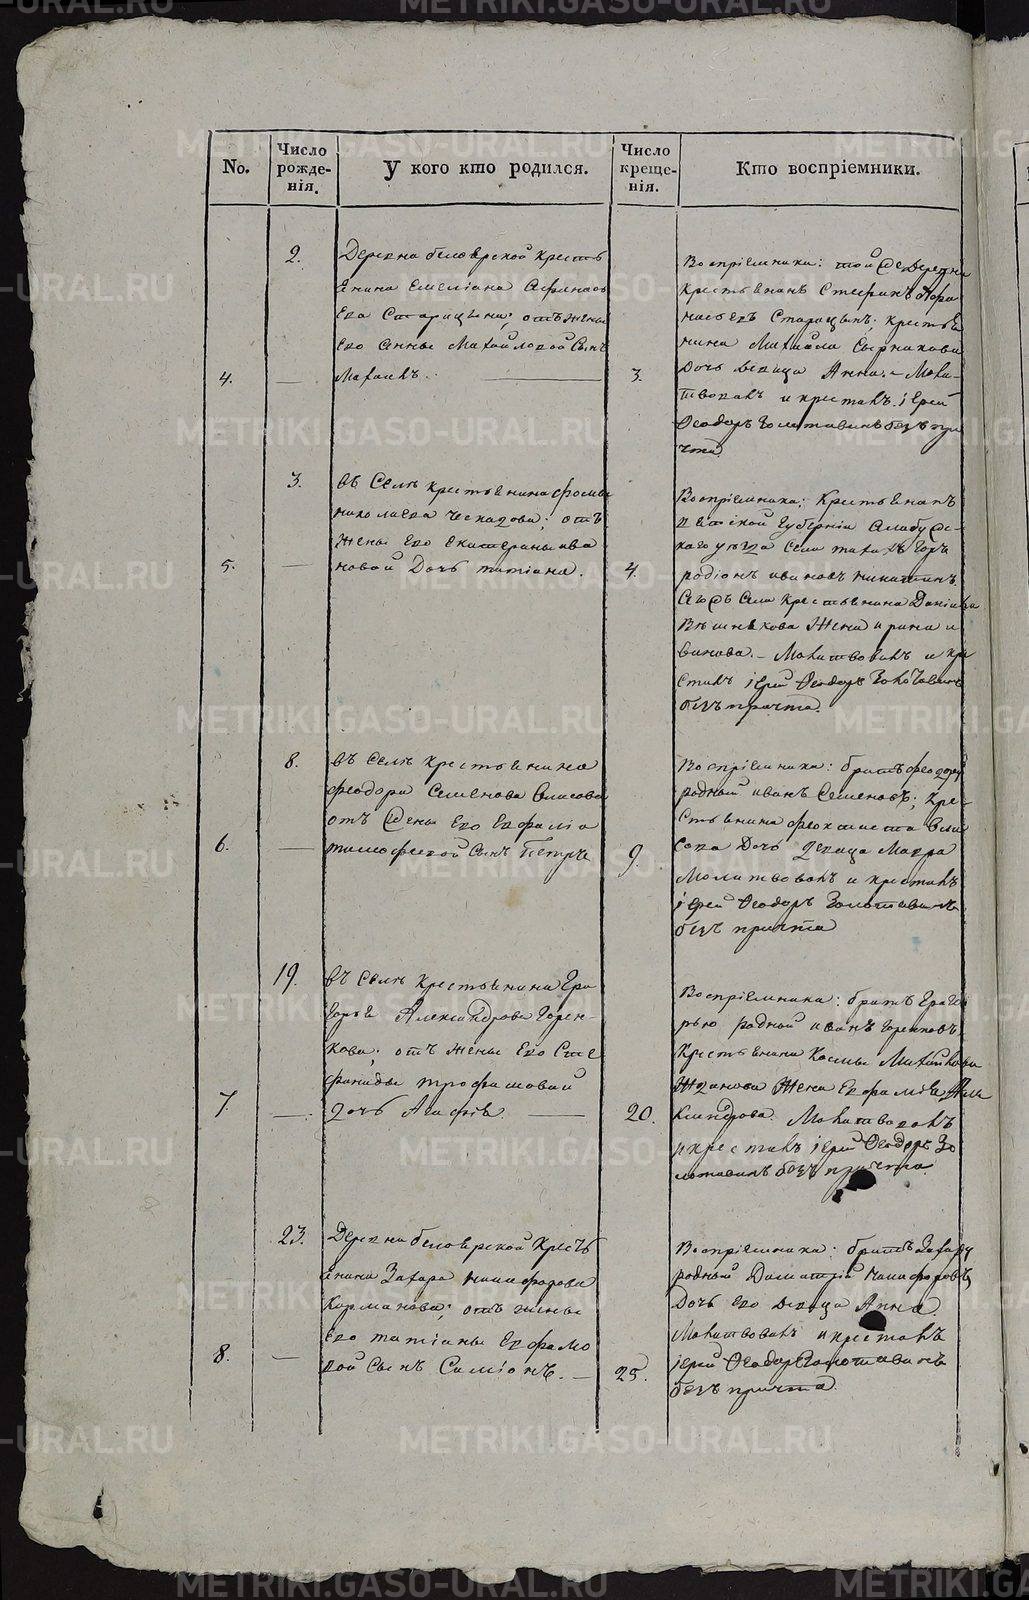 METRIKI.GASO-URAL.RU
No.
Число рожденія.
У кого кто родился.
Число крещенія.
Кто воспріемники.
4.
2.
Деревни белоярской кресть
янина Емелїана Афанась
ева Старицына; отъ жены
его Анны Михайловой сынъ
Михаилъ.
3.
Воспріемники: той же деревни
крестьянинъ Стефанъ Афа
насьевъ Старицынъ; крестья
нина Михаила
дочь девица Анна. Моли-
твовалъ и крестилъ іерей
Ѳеодоръ Золотавинъ безъ при
чта.
5.
3.
въ Селѣ крестьянина Фомы
николаева; отъ
жены его Екатерины ива
новой дочь татіана.
4.
Воспріемники: Крестьянинъ
вятской губерніи Елабужс-
каго уѣзда села
родіонъ ивановъ никитинъ.
села крестьянина Даніила
Вѣшнякова жена ирина и
ванова. Молитвовалъ и кре
стилъ іерей Ѳеодоръ Золотавинъ
безъ причта.
6.
8.
въ Селѣ крестьянина
феодора Семенова Власова
отъ жены его Евфаліи
тимофеевой сынъ Петръ
9.
Воспріемники: братъ феодору
родный иванъ Семеновъ; кре-
стьянина феоктиста Вла
сова дочь девица Мавра
Молитвовалъ и крестилъ
іерей Ѳеодоръ Золотавинъ
безъ причта
7.
19.
въ Селѣ крестьянина Гри
горья Александрова Горен-
кова; отъ жены его Сте
фаниды трофимовой
дочь Агафія
20.
Воспріемники: братъ Григо
рью родной иванъ Горенковъ
крестьянина Космы Михайлова
Жданова жена Евфалія Але
ксандрова. Молитвовалъ
и крестилъ іерей Ѳеодоръ Зо
лотавинъ безъ причта.
8.
23.
Деревни белоярской кресть
янина Захара никифорова
Корманова; отъ жены
его татіаны Ефремо
вой сынъ Симіонъ.
25.
Воспріемники: братъ Захару
родный Димитрій никифоровъ,
дочь его девица Анна.
Молитвовалъ и крестилъ
іерей Ѳеодоръ Золотавинъ
безъ причта.